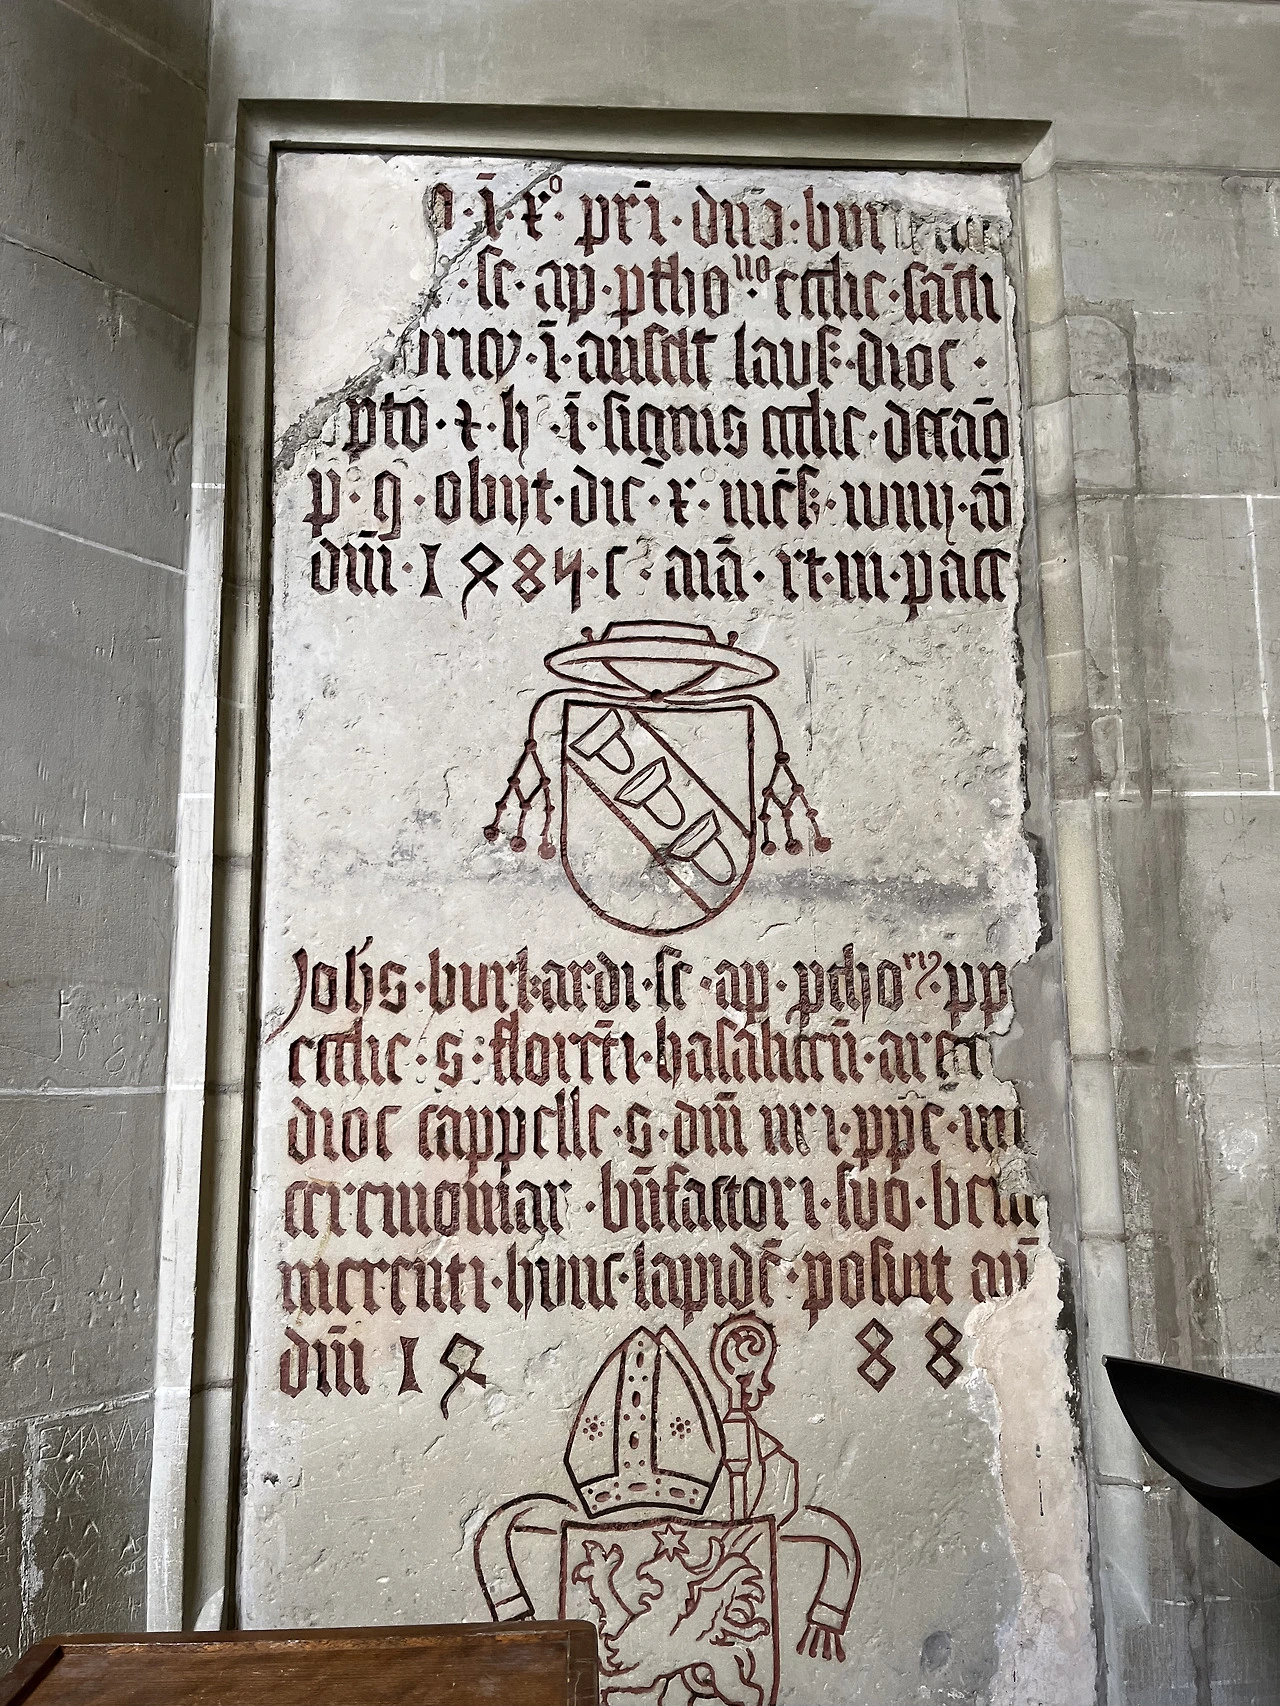 ī · xº · pr̄i · dn̄o · bur
· se · ap · ptho ͧ ͦ · eccl̄ie · sān̄cti
ī · ausest laus · dioc ·
pto · ⁊ · h · ī · signis eccl̄ie · decāo
p · q · obijt · die · x · mēs · iunij · ān̄o
dn̄i · 1484 · c · aīa · r̄t · in · pace
Joh̄s · burkardi · se · ap · ptho · pp
eccl̄ie · s · florēti · haslahceñ · argen
dioc cappelle · s · dn̄i nr̄i · ppe ·
ceremoniar · bn̄factori · suo · bene
merenti · hunc · lapidē · posuit an̄
dn̄i 14 88